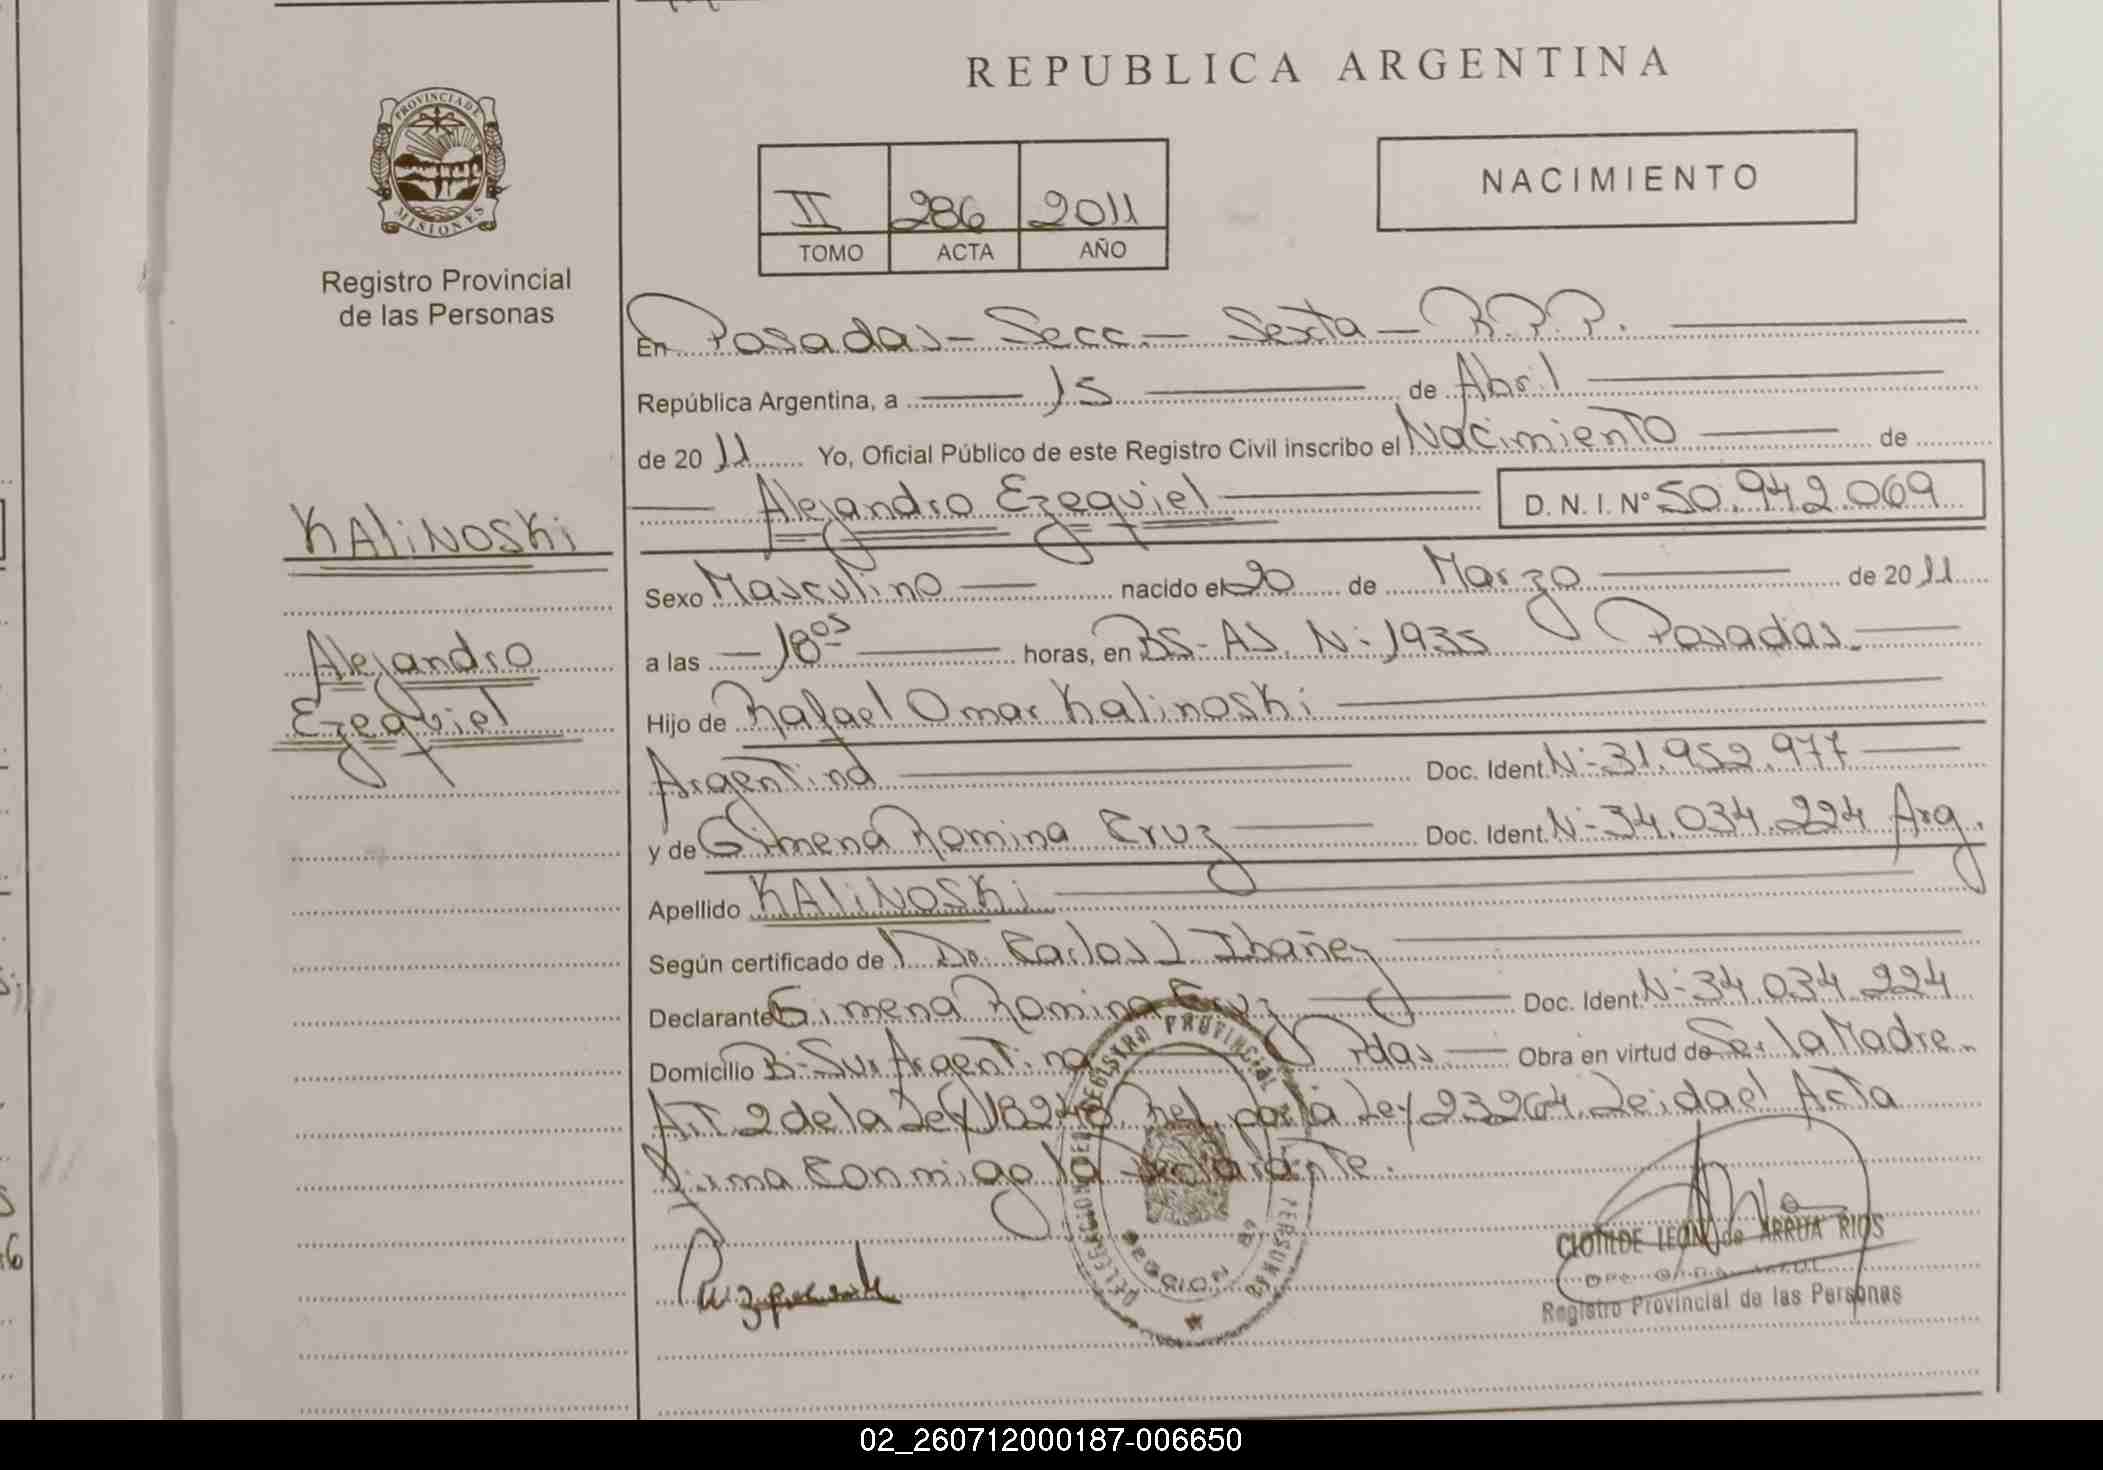 REPUBLICA ARGENTINA
PROVINCIA DE
MISIONES
Registro Provincial
de las Personas
II 286 2011
TOMO ACTA AÑO
NACIMIENTO
En Posadas - Secc. - Sexta - R.P.P.
República Argentina, a 15 de Abril
de 2011 Yo, Oficial Público de este Registro Civil inscribo el Nacimiento de
Alejandro Ezequiel D. N. I. Nº 50.942.069
KALiNOSKi
Alejandro
Ezequiel
Sexo Masculino nacido el 20 de Marzo de 2011
a las 18 05 horas, en BS-AS. N: 1935 Posadas.
Hijo de Rafael Omar Kalinoski
Argentina Doc. Ident. N: 31.952.977
y de Gimena Romina Cruz Doc. Ident. N: 34.034.224 Arg.
Apellido KALiNOSKi
Según certificado de Dr. Carlos J. Ibañez
Declarante Gimena Romina Cruz Doc. Ident. N: 34.034.224
Domicilio B: Sur Argentino Pdas. Obra en virtud de Ser la Madre.
Art. 2 de la Ley 18248 por la Ley 23264. Leida el Acta
firma conmigo la declarante.
REGISTRO PROVINCIAL DE LAS PERSONAS
CLOTILDE LEON de ARRUA RIOS
Registro Provincial de las Personas
02_260712000187-006650